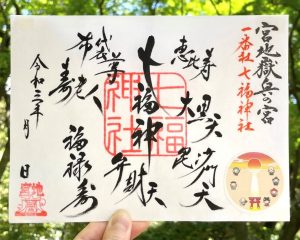 宮地嶽兵の宮
一番社七福神社
恵比寿
大黒天
毘沙門天
七福神
弁財天
布袋尊
寿老人
福禄寿
七福神社
令和三年 月 日